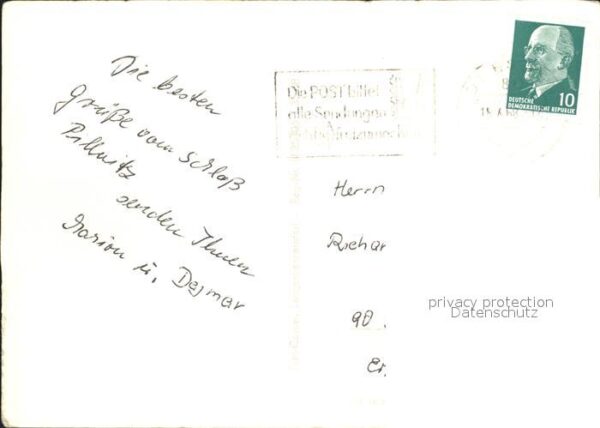 Die besten
Grüße vom Schloß
Pillnitz
senden Ihnen
Marion u. Dagmar
Die POST bittet
alle Sendungen
DEUTSCHE
DEMOKRATISCHE REPUBLIK
10
Herrn
Richar
90.
privacy protection
Datenschutz